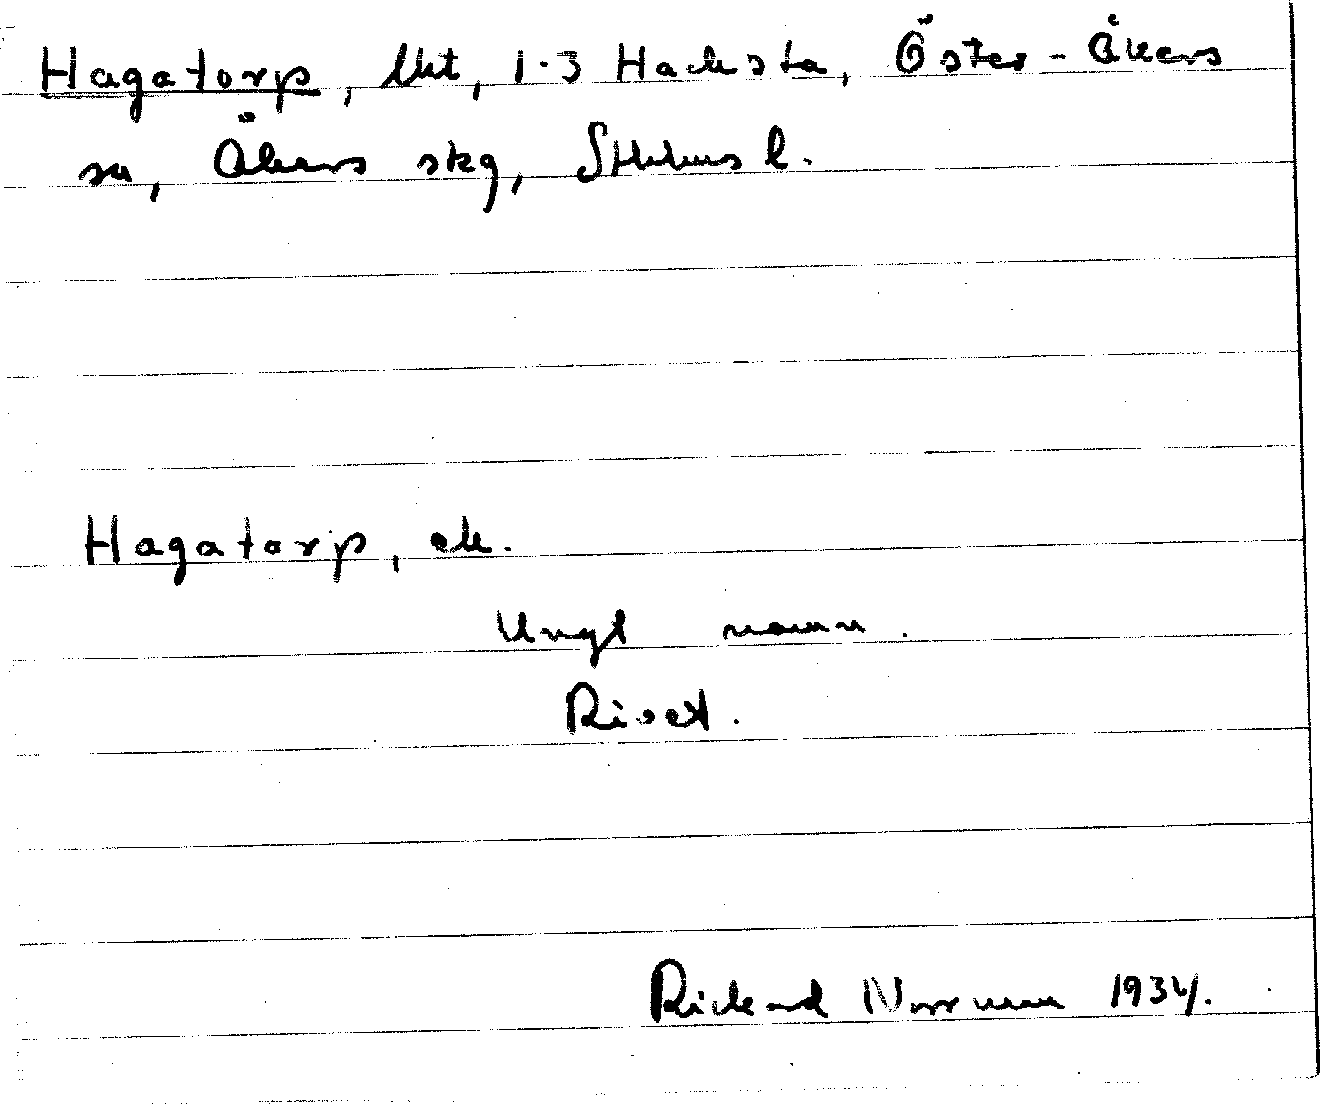 Hagatorp, lht, 1·3 Hacksta, Öster-Åkers
sn, Åkers skg, Sthlms l.
Hagatorp, ek.
Ungt namn.
Riset.
Rickard Norrman 1934.